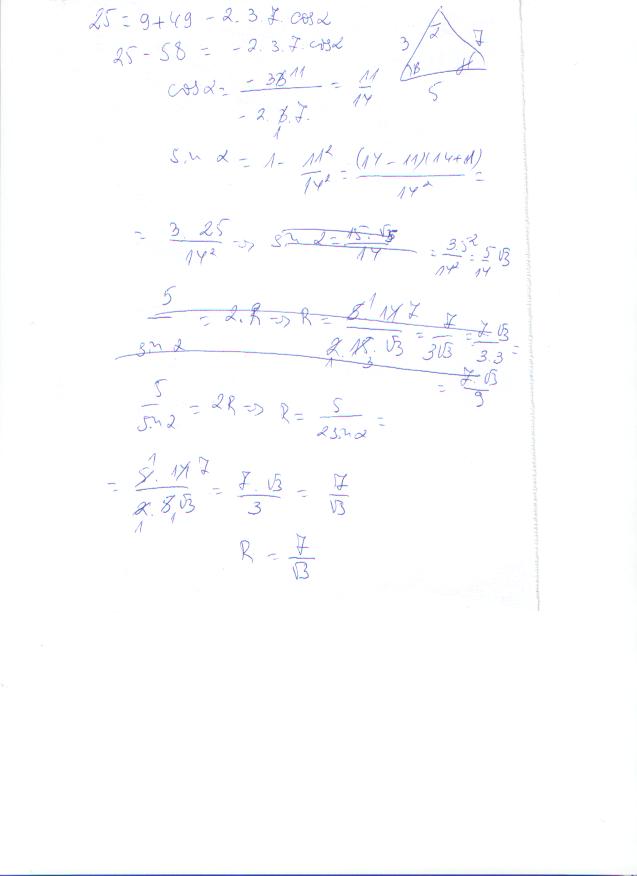 25 = 9+49 - 2.3.7.cosα
25 - 58 = -2.3.7.cosα
3
α
7
β
γ
5
cosα = -33 11 / -2.3.7. 1 = 11/14
sin α = 1 - 11²/14² = (14-11)(14+11)/14² =
= 3.25/14² => sin α = 15.√3/14 = 3.5²/14² = 5/14 √3
5/sin α = 2.R => R = 5 1 14 7 / 2.15.√3 1 3 = 7/3√3 = 7√3/3.3 =
= 7.√3/9
5/sin α = 2R => R = 5/2sin α =
= 5.14 1 7 / 2.5√3 1 1 = 7.√3/3 = 7/√3
R = 7/√3